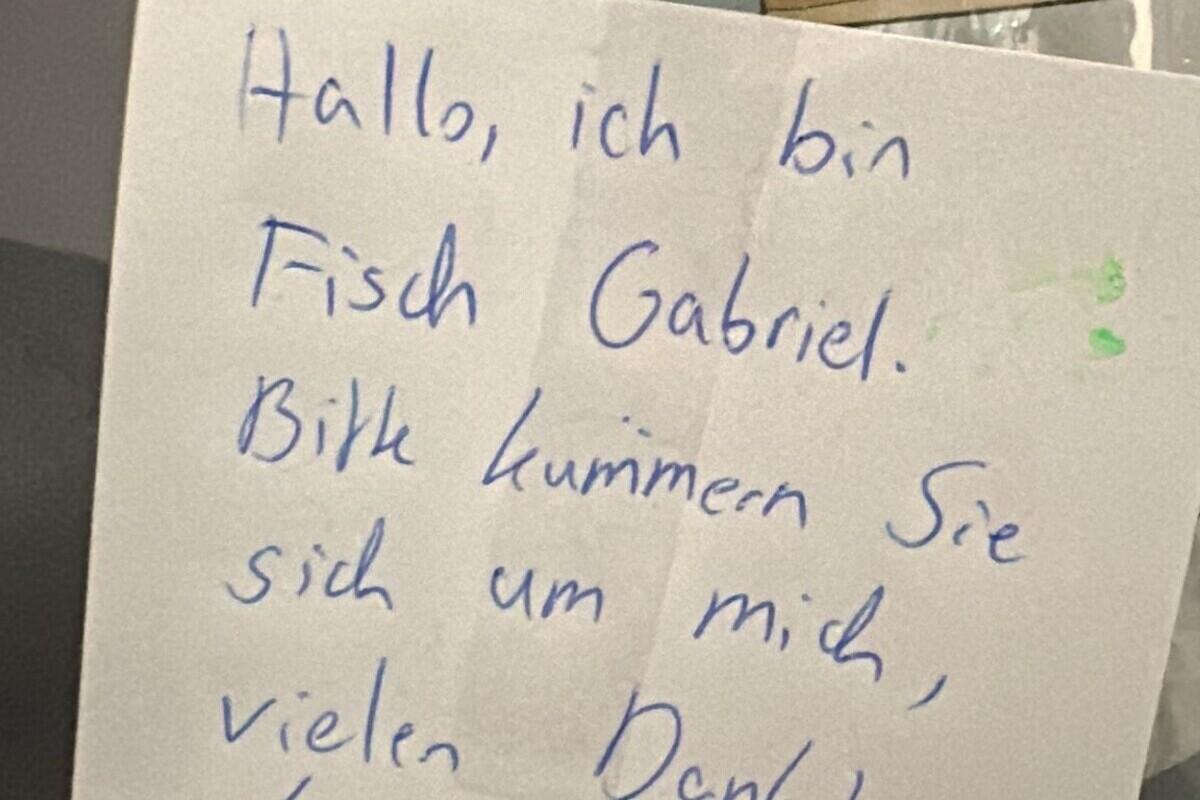 Hallo, ich bin
Fisch Gabriel.
Bitte kümmern Sie
sich um mich,
vielen Dank!